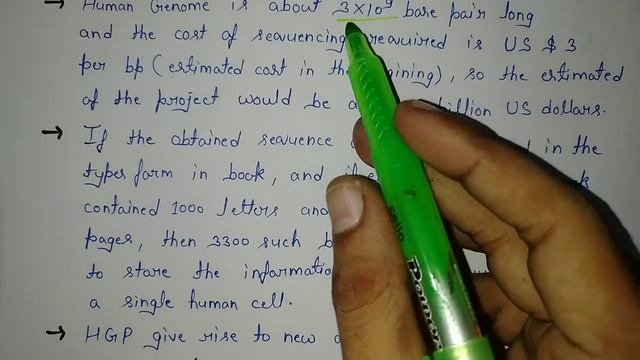 → Human Genome is about 3×10⁹ base pair long
and the cost of sequencing required is US $ 3
per bp (estimated cost in the), so the estimated
of the project would be billion US dollars.
→ If the obtained sequence in the
types form in book, and
contained 1000 letters and
pages, then 3300 such
to store the information
a single human cell.
→ HGP give rise to new
cello